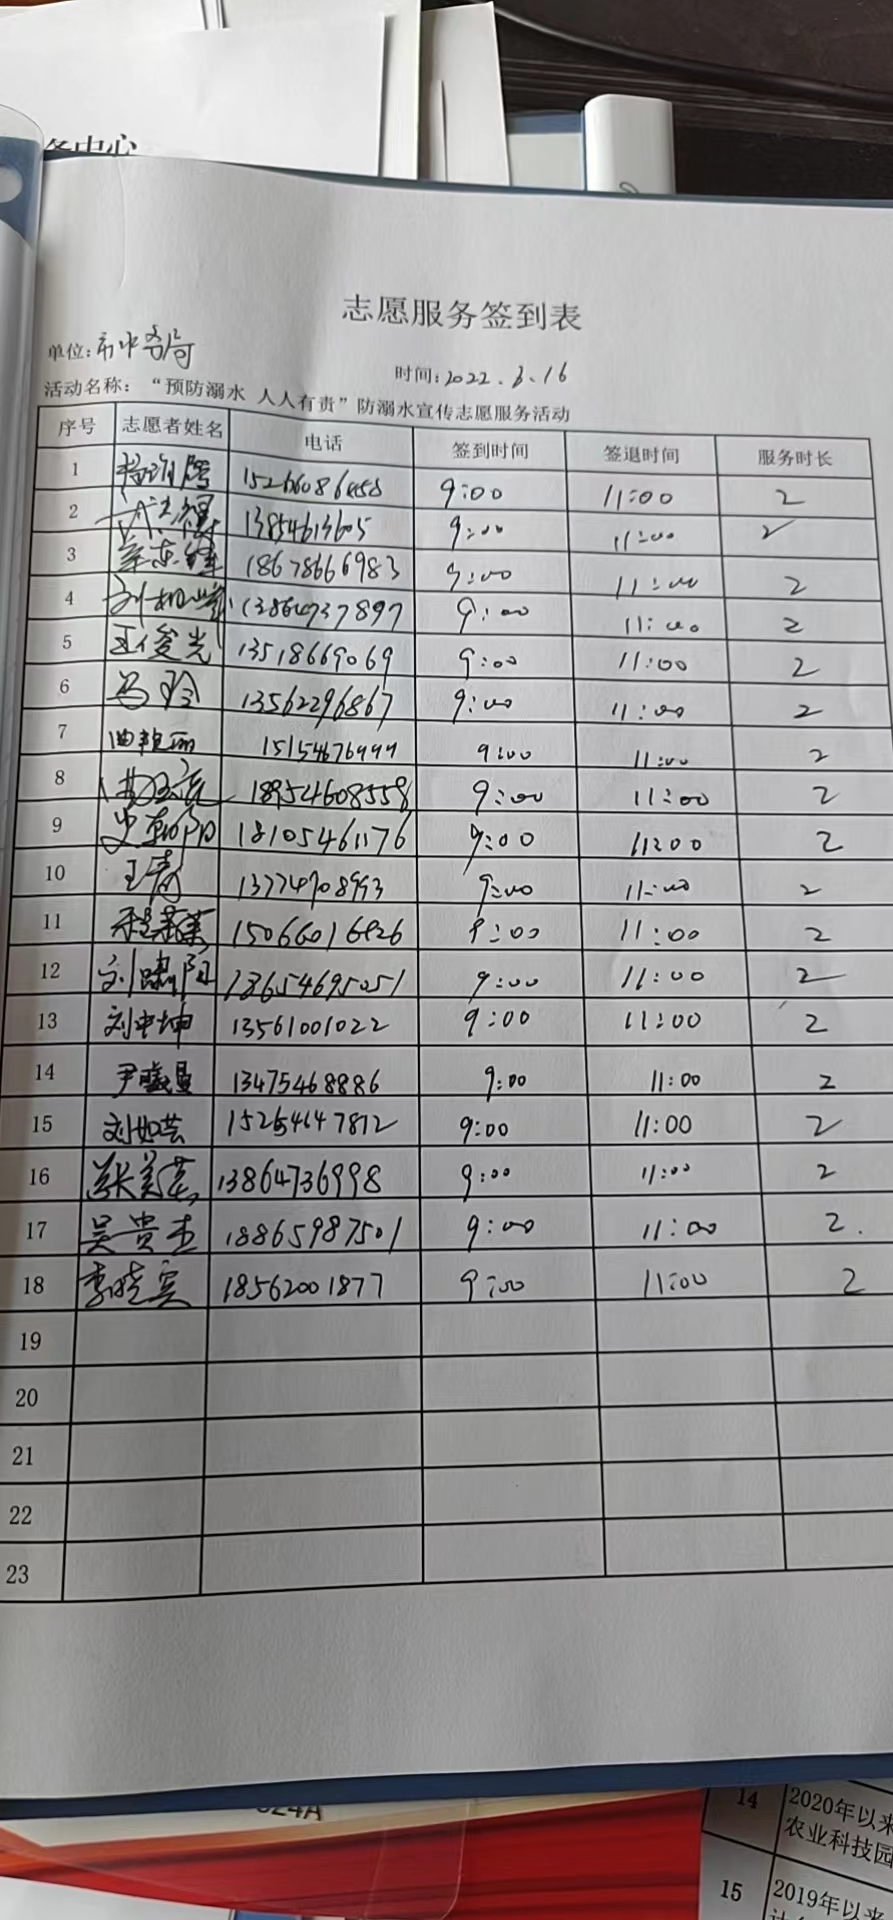 务中心
志愿服务签到表
单位:
时间: 2022.3.16
活动名称: “预防溺水 人人有责”防溺水宣传志愿服务活动
序号 志愿者姓名 电话 签到时间 签退时间 服务时长
1 9:00 11:00 2
2 13854613605 9:00 11:00 2
3 18678666983 9:00 11:00 2
4 刘 9:00 11:00 2
5 王俊光 13518669069 9:00 11:00 2
6 马玲 13562296867 9:00 11:00 2
7 曲艳丽 9:00 11:00 2
8 18954608558 9:00 11:00 2
9 史朝阳 18105461176 9:00 11:00 2
10 王青 9:00 11:00 2
11 9:00 11:00 2
12 刘啸阳 13654695051 9:00 11:00 2
13 刘中坤 13561001022 9:00 11:00 2
14 尹曦曼 13475468886 9:00 11:00 2
15 刘如芸 9:00 11:00 2
16 13864736998 9:00 11:00 2
17 吴贵圭 18865987501 9:00 11:00 2.
18 李晓宾 18562001877 9:00 11:00 2
19
20
21
22
23
024A
14 2020年以来
农业科技园
15 2019年以来